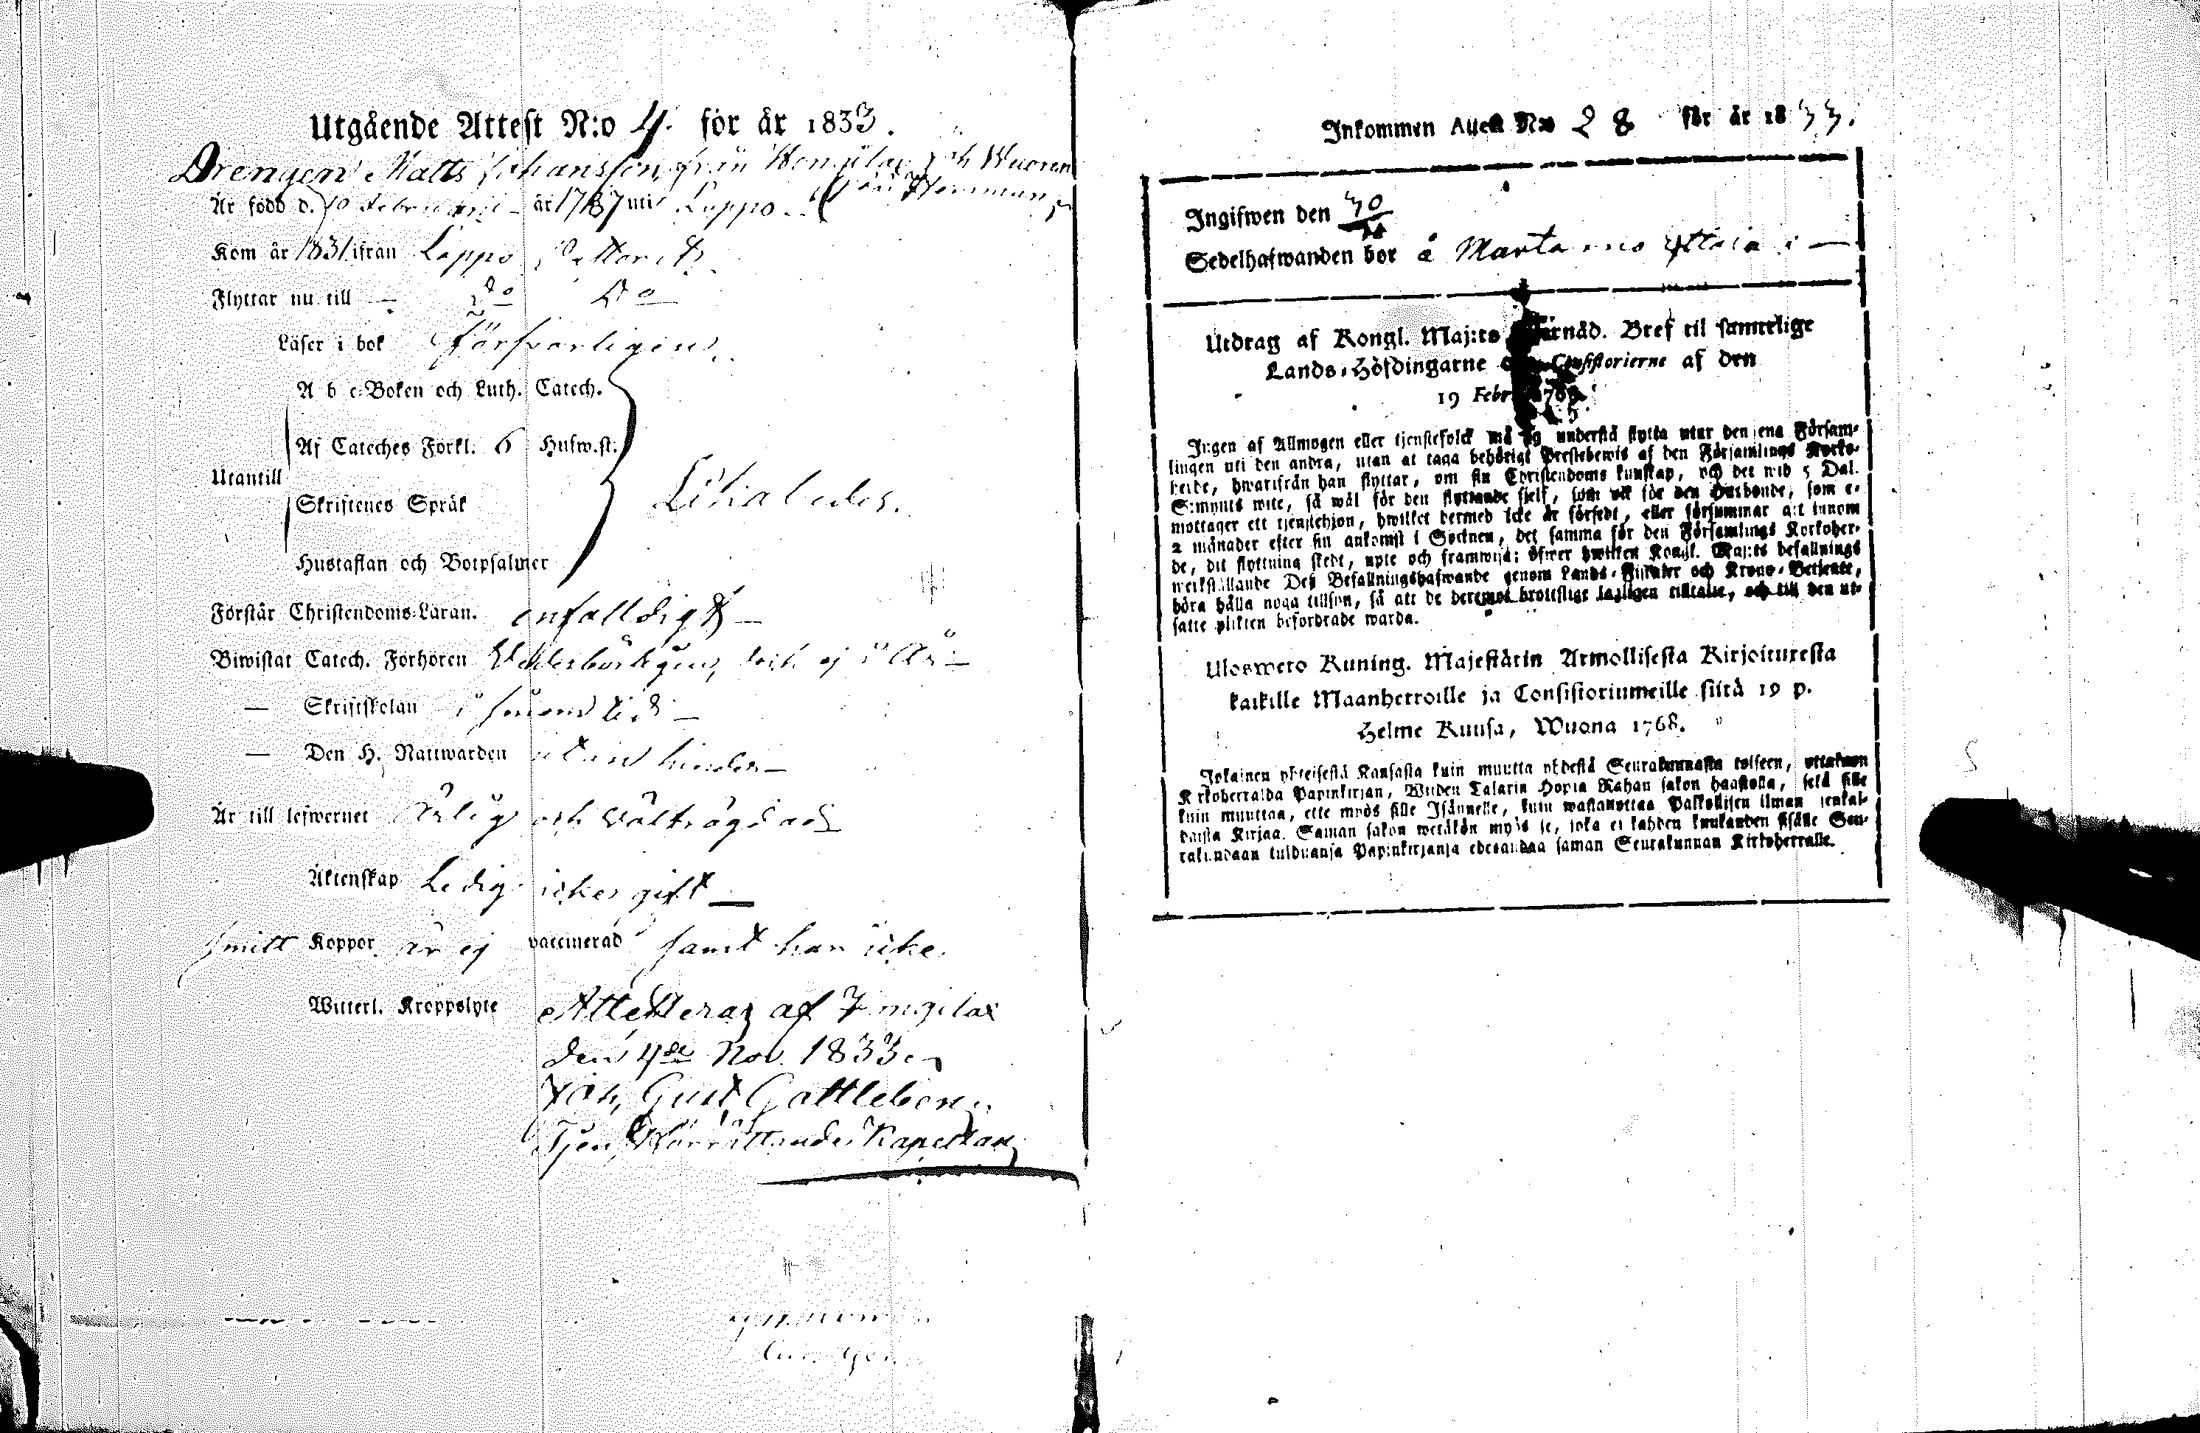 Utgående Attest N:o 4. för år 1833.
Drengen Matts Johansson från
Är född d. 10 Februarii år 1787 uti Lappo
Kom år 1831 ifrån Lappo
Flyttar nu till — do do
Läser i bok Försvarligen
A b c-Boken och Luth. Catech.
Af Cateches Förkl. 6 Husw.st.
Utantill
Skriftenes Språk
Lika ledes.
Hustaflan och Botpsalmer
Förstår Christendoms-Läran. enfalldigt —
Biwistat Catech. Förhören Wederbörligen, ej i År —
— Skriftskolan i sinom tid —
— Den H. Nattwarden utan hinder —
Är till lefwernet Ärlig och
Äktenskap Ledig icke gift —
Smitt Koppor är ej vaccinerad samt han icke
Witterl. Kroppslyte Attesteras af
den 4de Nov. 1833.
Joh. Gust. Gottleben
Tjenst Förrättande Kapellan
Inkommen Attest N:o 28 för år 1833.
Ingifwen den 30
Sedelhafwanden bor å
Utdrag af Kongl. Maj:ts Bref til samtelige
Lands-Höfdingarne Consistorierne af den
19 Febr. 1768.
Ingen af Allmogen eller tjenstefolck må ej understå flytta utur den ena Församlingen
uti den andra, utan at taga behörigt Prestebewis af den Församlings Kyrkoherde,
hwarifrån han flyttar, om sin Christendoms kunskap, och det wid 5 Dal.
S:mynts wite, så wäl för den flyttande sjelf, som ock för den Husbonde, som emottager
ett tjenstehjon, hwilket dermed icke är försedt, eller försummar att innom
2 månader efter sin ankomst i Socknen, det samma för den Församlings Kyrkoherde,
dit flyttning skedt, upte och framwisa; öfwer hwilken Kongl. Maj:ts befallnings
werkställande Dess Befallningshafwande genom Lands-Fiskaler och Krono-Betjente,
böra hålla noga tillsyn, så att de deremot brottslige lagligen tilltalte, och till den utsatte
plikten befordrade warda.
Uloswero Kuning. Majestätin Armollisesta Kirjoituxesta
kaikille Maanherroille ja Consistoriumeille siitä 19 p.
Helme Kuusa, Wuona 1768.
Jokainen yhteisestä Kansasta kuin muutta yhdestä Seurakunnasta toiseen, ottakoon
Kirkoherralda Papinkirjan, Wiiden Talarin Hopia Rahan sakon haastolla, sekä sille
kuin muuttaa, ette myös sille Isännelle, kuin wastanottaa Palkollisen ilman senkaldaista
Kirjaa. Saman sakon wetäkön myös se, joka ei kahden kuukauden sisälle Seurakundaan
tulduansa Papinkirjansa edesandaa saman Seurakunnan Kirkoherralle.